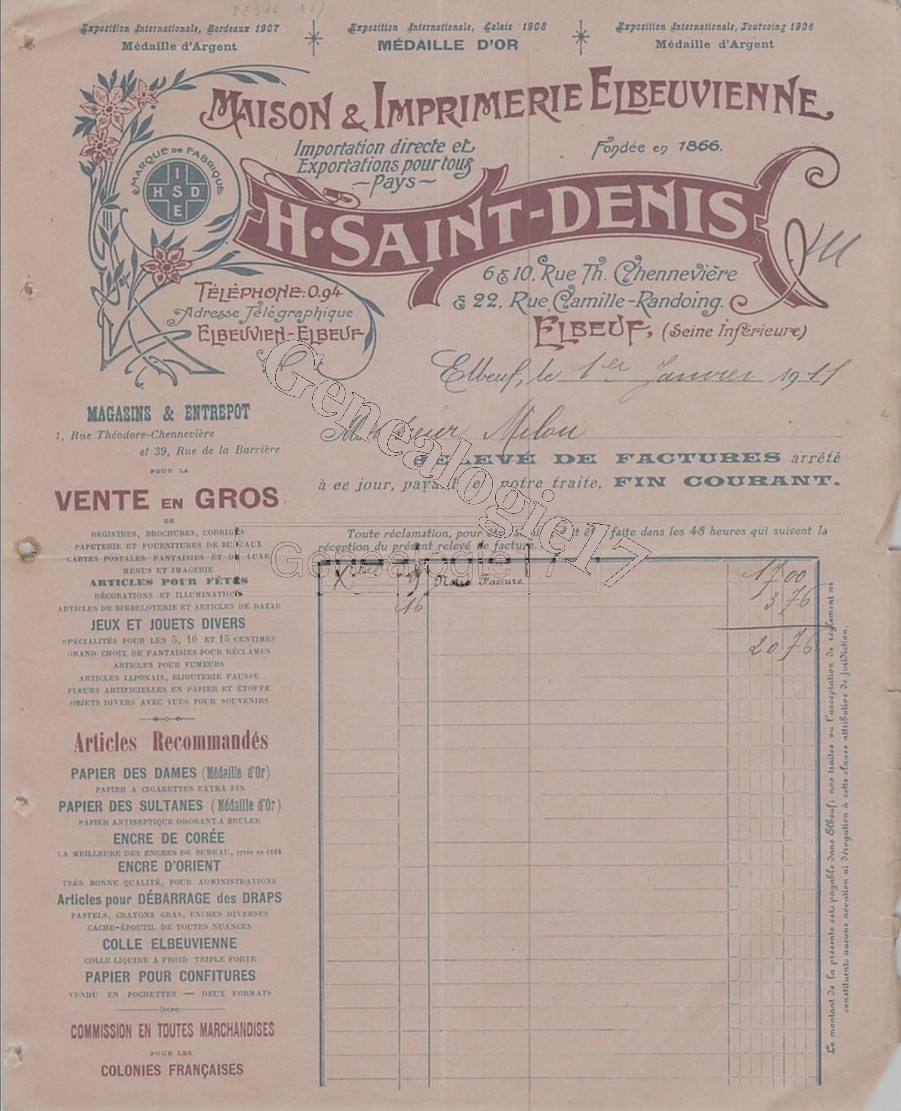 Exposition Internationale, Bordeaux 1907
Médaille d'Argent
Exposition Internationale, Calais 1908
MÉDAILLE D'OR
Exposition Internationale, Tourcoing 1906
Médaille d'Argent
MAISON & IMPRIMERIE ELBEUVIENNE
Importation directe et
Exportations pour tous
— Pays —
Fondée en 1866.
MARQUE DE FABRIQUE
I
HSD
E
H. SAINT-DENIS
6 & 10. Rue Th. Chennevière
& 22. Rue Camille-Randoing.
ELBEUF, (Seine Inférieure)
TÉLÉPHONE: 0.94
Adresse Télégraphique
ELBEUVIEN-ELBEUF
Elbeuf, le 1er Janvier 1911
Monsieur Milou
RELEVÉ DE FACTURES arrêté
à ce jour, payable notre traite, FIN COURANT.
Toute réclamation, pour être faite dans les 48 heures qui suivent la
réception du présent relevé de facture.
MAGASINS & ENTREPOT
1, Rue Théodore-Chennevière
et 39, Rue de la Barrière
POUR LA
VENTE EN GROS
DE
REGISTRES, BROCHURES, CORRIGÉS
PAPETERIE ET FOURNITURES DE BUREAUX
CARTES POSTALES FANTAISIES ET DE LUXE
MENUS ET IMAGERIE
ARTICLES POUR FÊTES
DÉCORATIONS ET ILLUMINATIONS
ARTICLES DE BIMBELOTERIE ET ARTICLES DE BAZAR
JEUX ET JOUETS DIVERS
SPÉCIALITÉS POUR LES 5, 10 ET 15 CENTIMES
GRAND CHOIX DE FANTAISIES POUR RÉCLAMES
ARTICLES POUR FUMEURS
ARTICLES JAPONAIS, BIJOUTERIE FAUSSE
FLEURS ARTIFICIELLES EN PAPIER ET ÉTOFFE
OBJETS DIVERS AVEC VUES POUR SOUVENIRS
Articles Recommandés
PAPIER DES DAMES (Médaille d'Or)
PAPIER A CIGARETTES EXTRA FIN
PAPIER DES SULTANES (Médaille d'Or)
PAPIER ANTISEPTIQUE ODORANT A BRULER
ENCRE DE CORÉE
LA MEILLEURE DES ENCRES DE BUREAU, créée en 1866
ENCRE D'ORIENT
TRÈS BONNE QUALITÉ, POUR ADMINISTRATIONS
Articles pour DÉBARRAGE des DRAPS
PASTELS, CRAYONS GRAS, ENCRES DIVERSES
CACHE-ÉPOUTIL DE TOUTES NUANCES
COLLE ELBEUVIENNE
COLLE LIQUIDE A FROID TRIPLE FORTE
PAPIER POUR CONFITURES
VENDU EN POCHETTES — DEUX FORMATS
COMMISSION EN TOUTES MARCHANDISES
POUR LES
COLONIES FRANÇAISES
9 Notre Facture 17 00
16 3 76
20 76
Le montant de la présente est payable dans Elbeuf; nos traites ou l'acceptation de règlement ne
constituent aucune novation ni dérogation à cette clause attributive de juridiction.
Genealogie17
Genealogie17